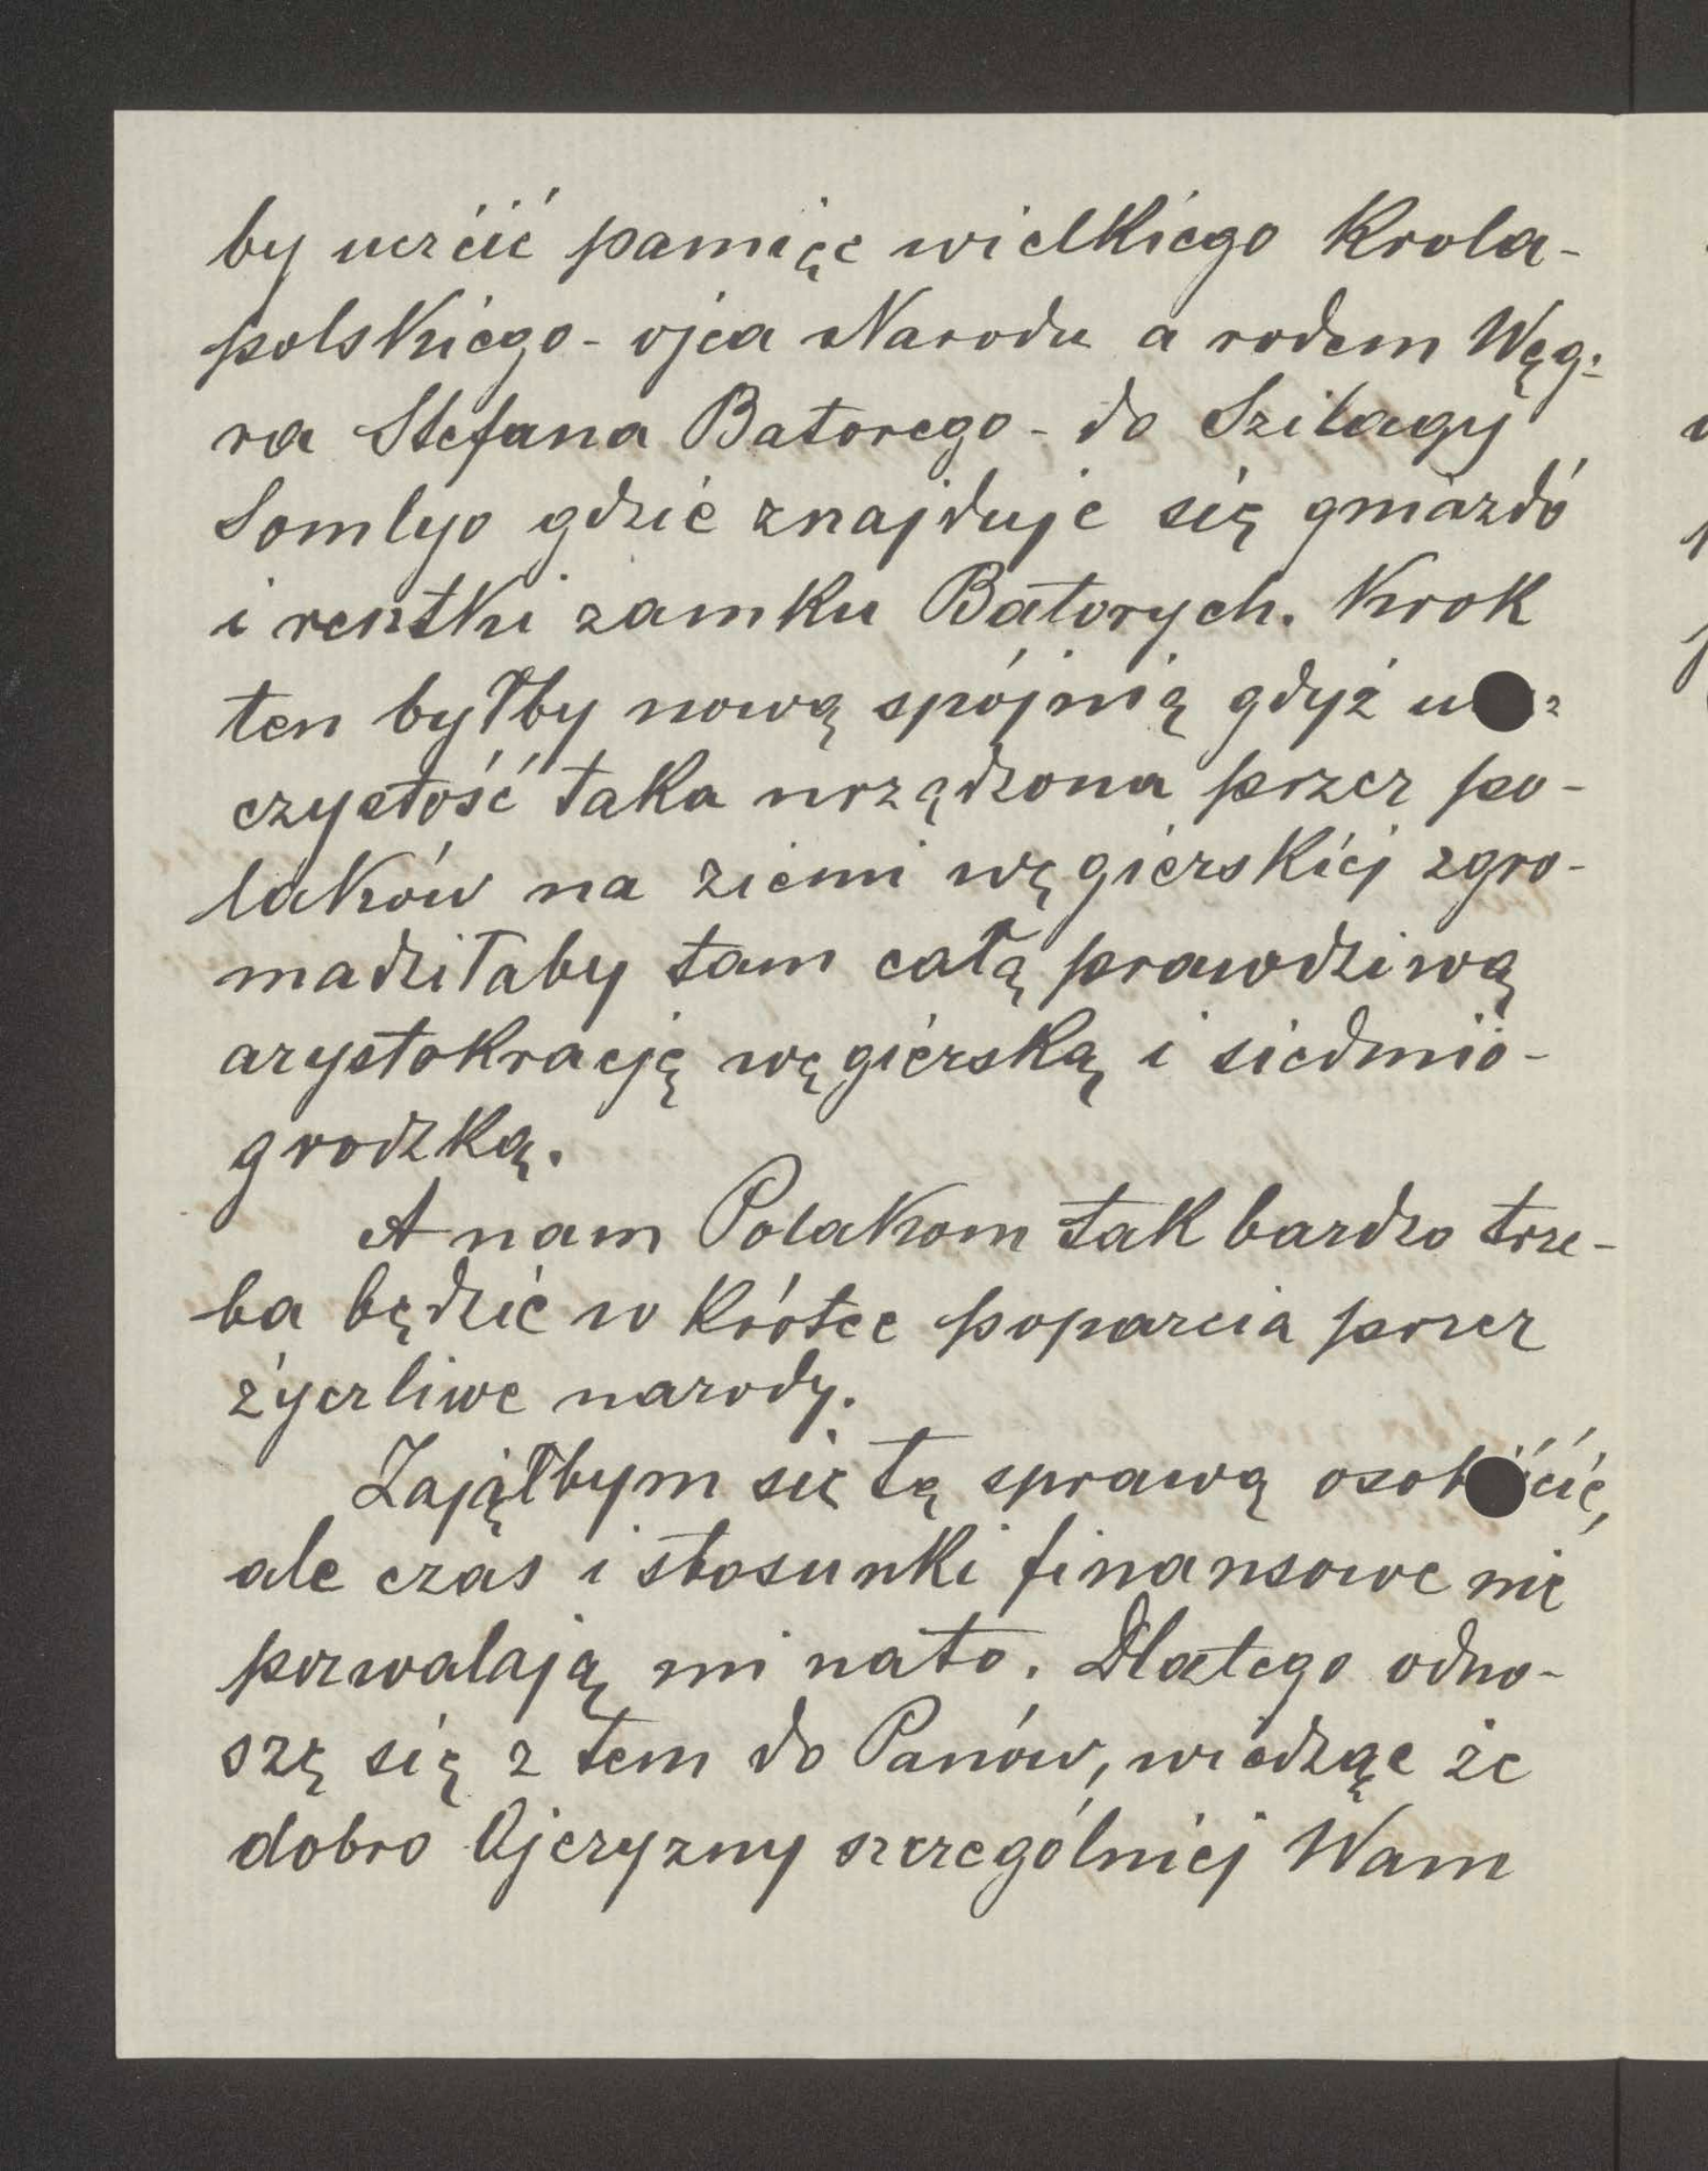 by uczćić pamięc wielkiego Krola-
polskiego - ojca Narodu a rodem Węg-
ra Stefana Batorego - do Szilagy
Somlyo gdzie znajduje się gniazdo
i resztki zamku Batorych. Krok
ten byłby nową spójnią gdyż
czystość taka urządzona przez po-
laków na ziemi węgierskiej zgro-
madziłaby tam całą prawdziwą
arystokracją węgierską i siedmio-
grodzką.
A nam Polakom tak bardzo trze-
ba będzie w krótce poparcia przez
życzliwe narody.
Zająłbym się tą sprawą
ale czas i stosunki finansowe nie
pozwalają mi nato. Dlatego odno-
szę się z tem do Panów, wiedząc że
dobro Ojczyzny szczególniej Wam